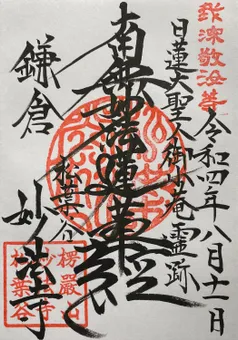 令和四年八月十一日
日蓮大聖人御小庵霊跡
南無妙法蓮華経
松葉谷
鎌倉
妙法寺
楞厳山
妙法寺
松葉谷